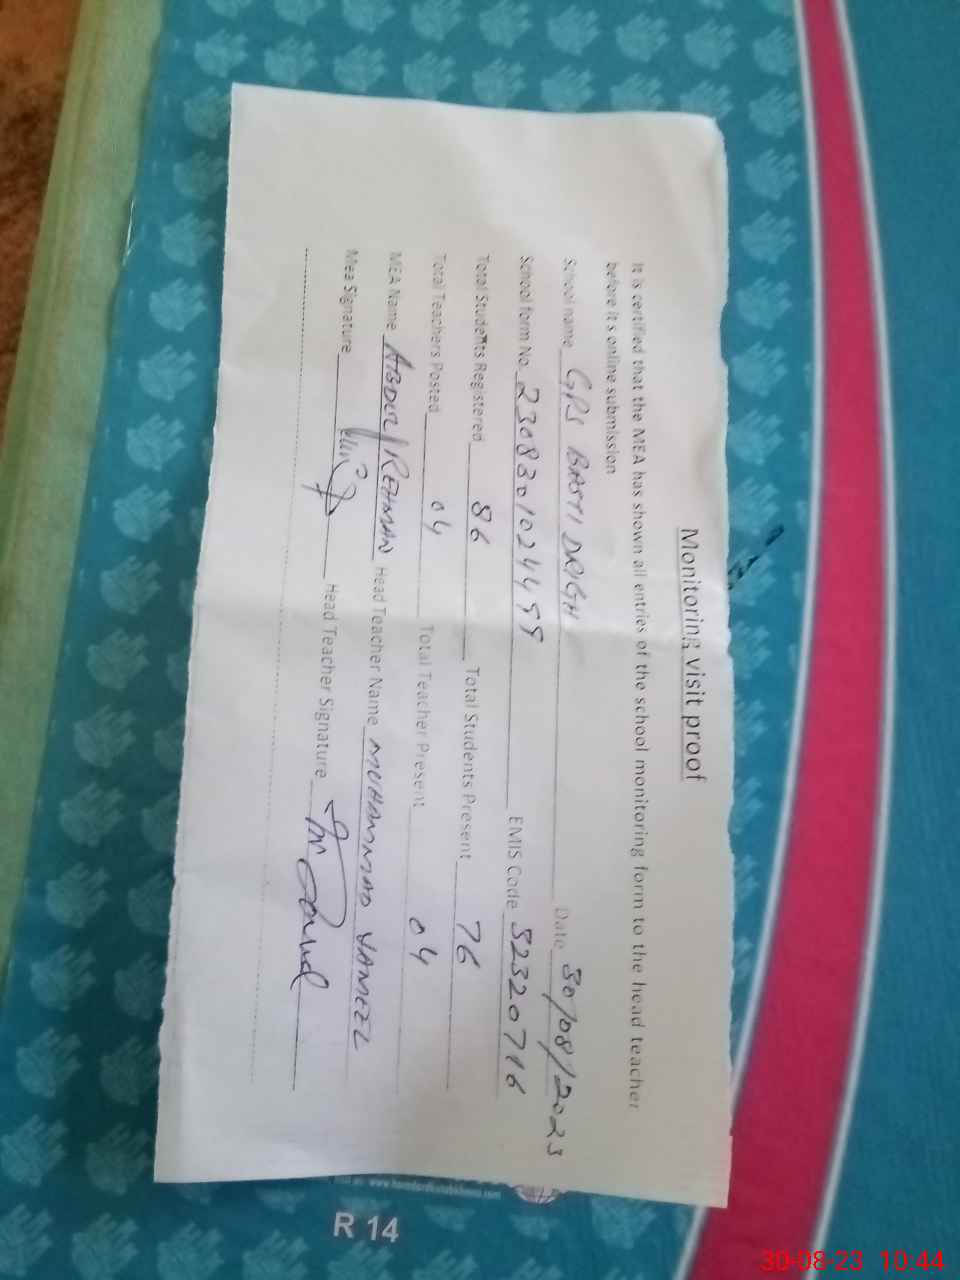 Monitoring visit proof
It is certified that the MEA has shown all entries of the school monitoring form to the head teacher
before it s online submission
School name GPS BASTI DRIGH Date 30/08/2023
School form No. 2308301024499 EMIS Code 32320716
Total Students Registered 86 Total Students Present 76
Total Teachers Posted 04 Total Teacher Present 04
MEA Name ABDUL REHMAN Head Teacher Name MUHAMMAD JAMEEL
Mea Signature Head Teacher Signature
R 14
30-08-23 10:44